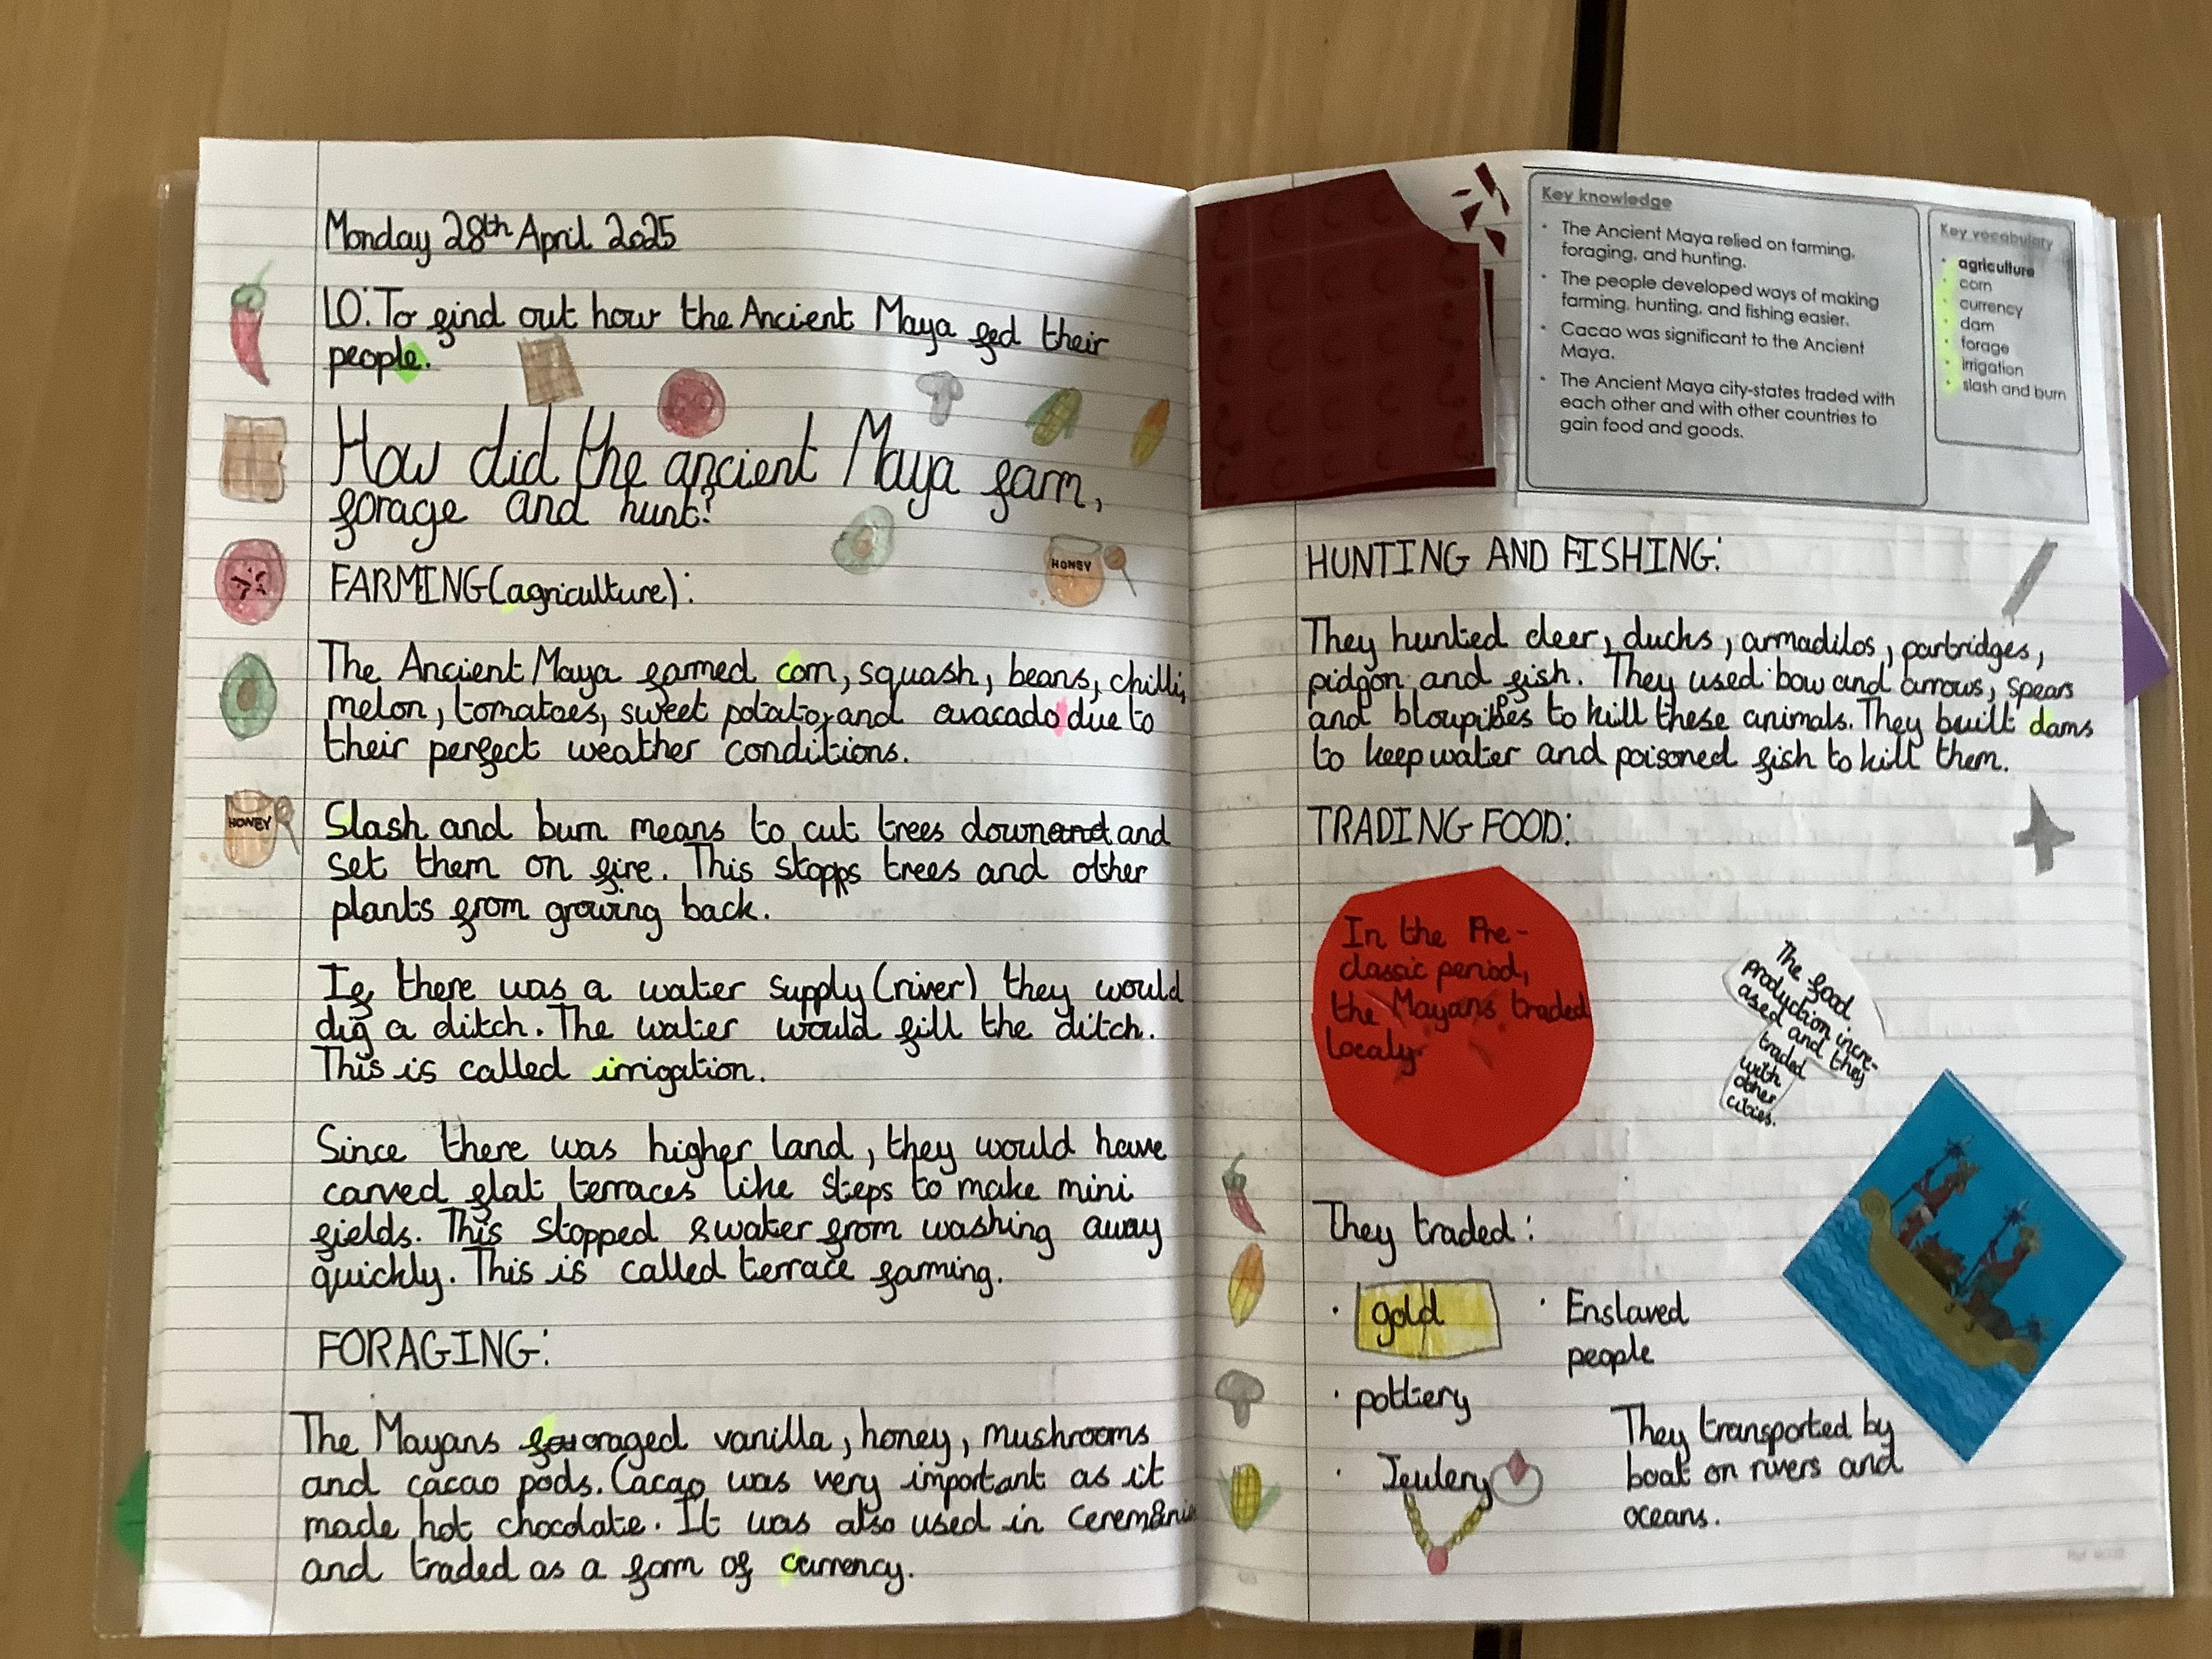 Monday 28th April 2025
LO: To find out how the Ancient Maya fed their
people.
How did the ancient Maya farm,
forage and hunt?
HONEY
FARMING (agriculture):
The Ancient Maya farmed corn, squash, beans, chilli,
melon, tomatoes, sweet potato, and avacado due to
their perfect weather conditions.
HONEY
Slash and burn means to cut trees down and and
set them on fire. This stopps trees and other
plants from growing back.
If there was a water supply (river) they would
dig a ditch. The water would fill the ditch.
This is called irrigation.
Since there was higher land, they would have
carved flat terraces like steps to make mini
fields. This stopped water from washing away
quickly. This is called terrace farming.
FORAGING:
The Mayans foraged vanilla, honey, mushrooms
and cacao pods. Cacao was very important as it
made hot chocolate. It was also used in
and traded as a form of currency.
Key knowledge
• The Ancient Maya relied on farming,
foraging, and hunting.
• The people developed ways of making
farming, hunting, and fishing easier.
• Cacao was significant to the Ancient
Maya.
• The Ancient Maya city-states traded with
each other and with other countries to
gain food and goods.
Key vocabulary
• agriculture
• corn
• currency
• dam
• forage
• irrigation
• slash and burn
HUNTING AND FISHING:
They hunted deer, ducks, armadilos, partridges,
pidgon and fish. They used bow and arrows, spears
and bloupipes to kill these animals. They built dams
to keep water and poisoned fish to kill them.
TRADING FOOD:
In the Pre-
classic period,
the Mayans traded
localy.
The food
production incre-
ased and they
traded
with
other
cities.
They traded:
• gold
• Enslaved
people
• pottery
• Jeulery
They transported by
boat on rivers and
oceans.